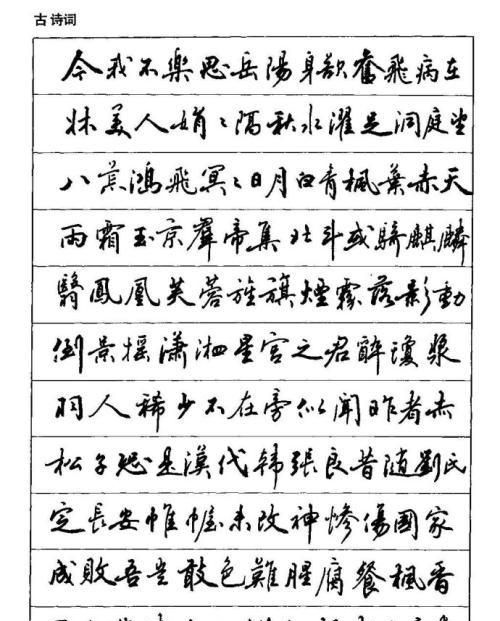 古诗词
今我不樂思岳陽身欲奮飛病在
牀美人娟〻隔秋水濯足洞庭望
八荒鴻飛冥〻日月白青楓葉赤天
雨霜玉京群帝集北斗或騎麒麟
翳鳳凰芙蓉旌旗煙霧落影動
倒景摇瀟湘星宫之君醉瓊漿
羽人稀少不在旁似聞昨者赤
松子恐是漢代韓張良昔随劉氏
定長安帷幄未改神惨傷國家
成敗吾豈敢色難腥腐餐楓香